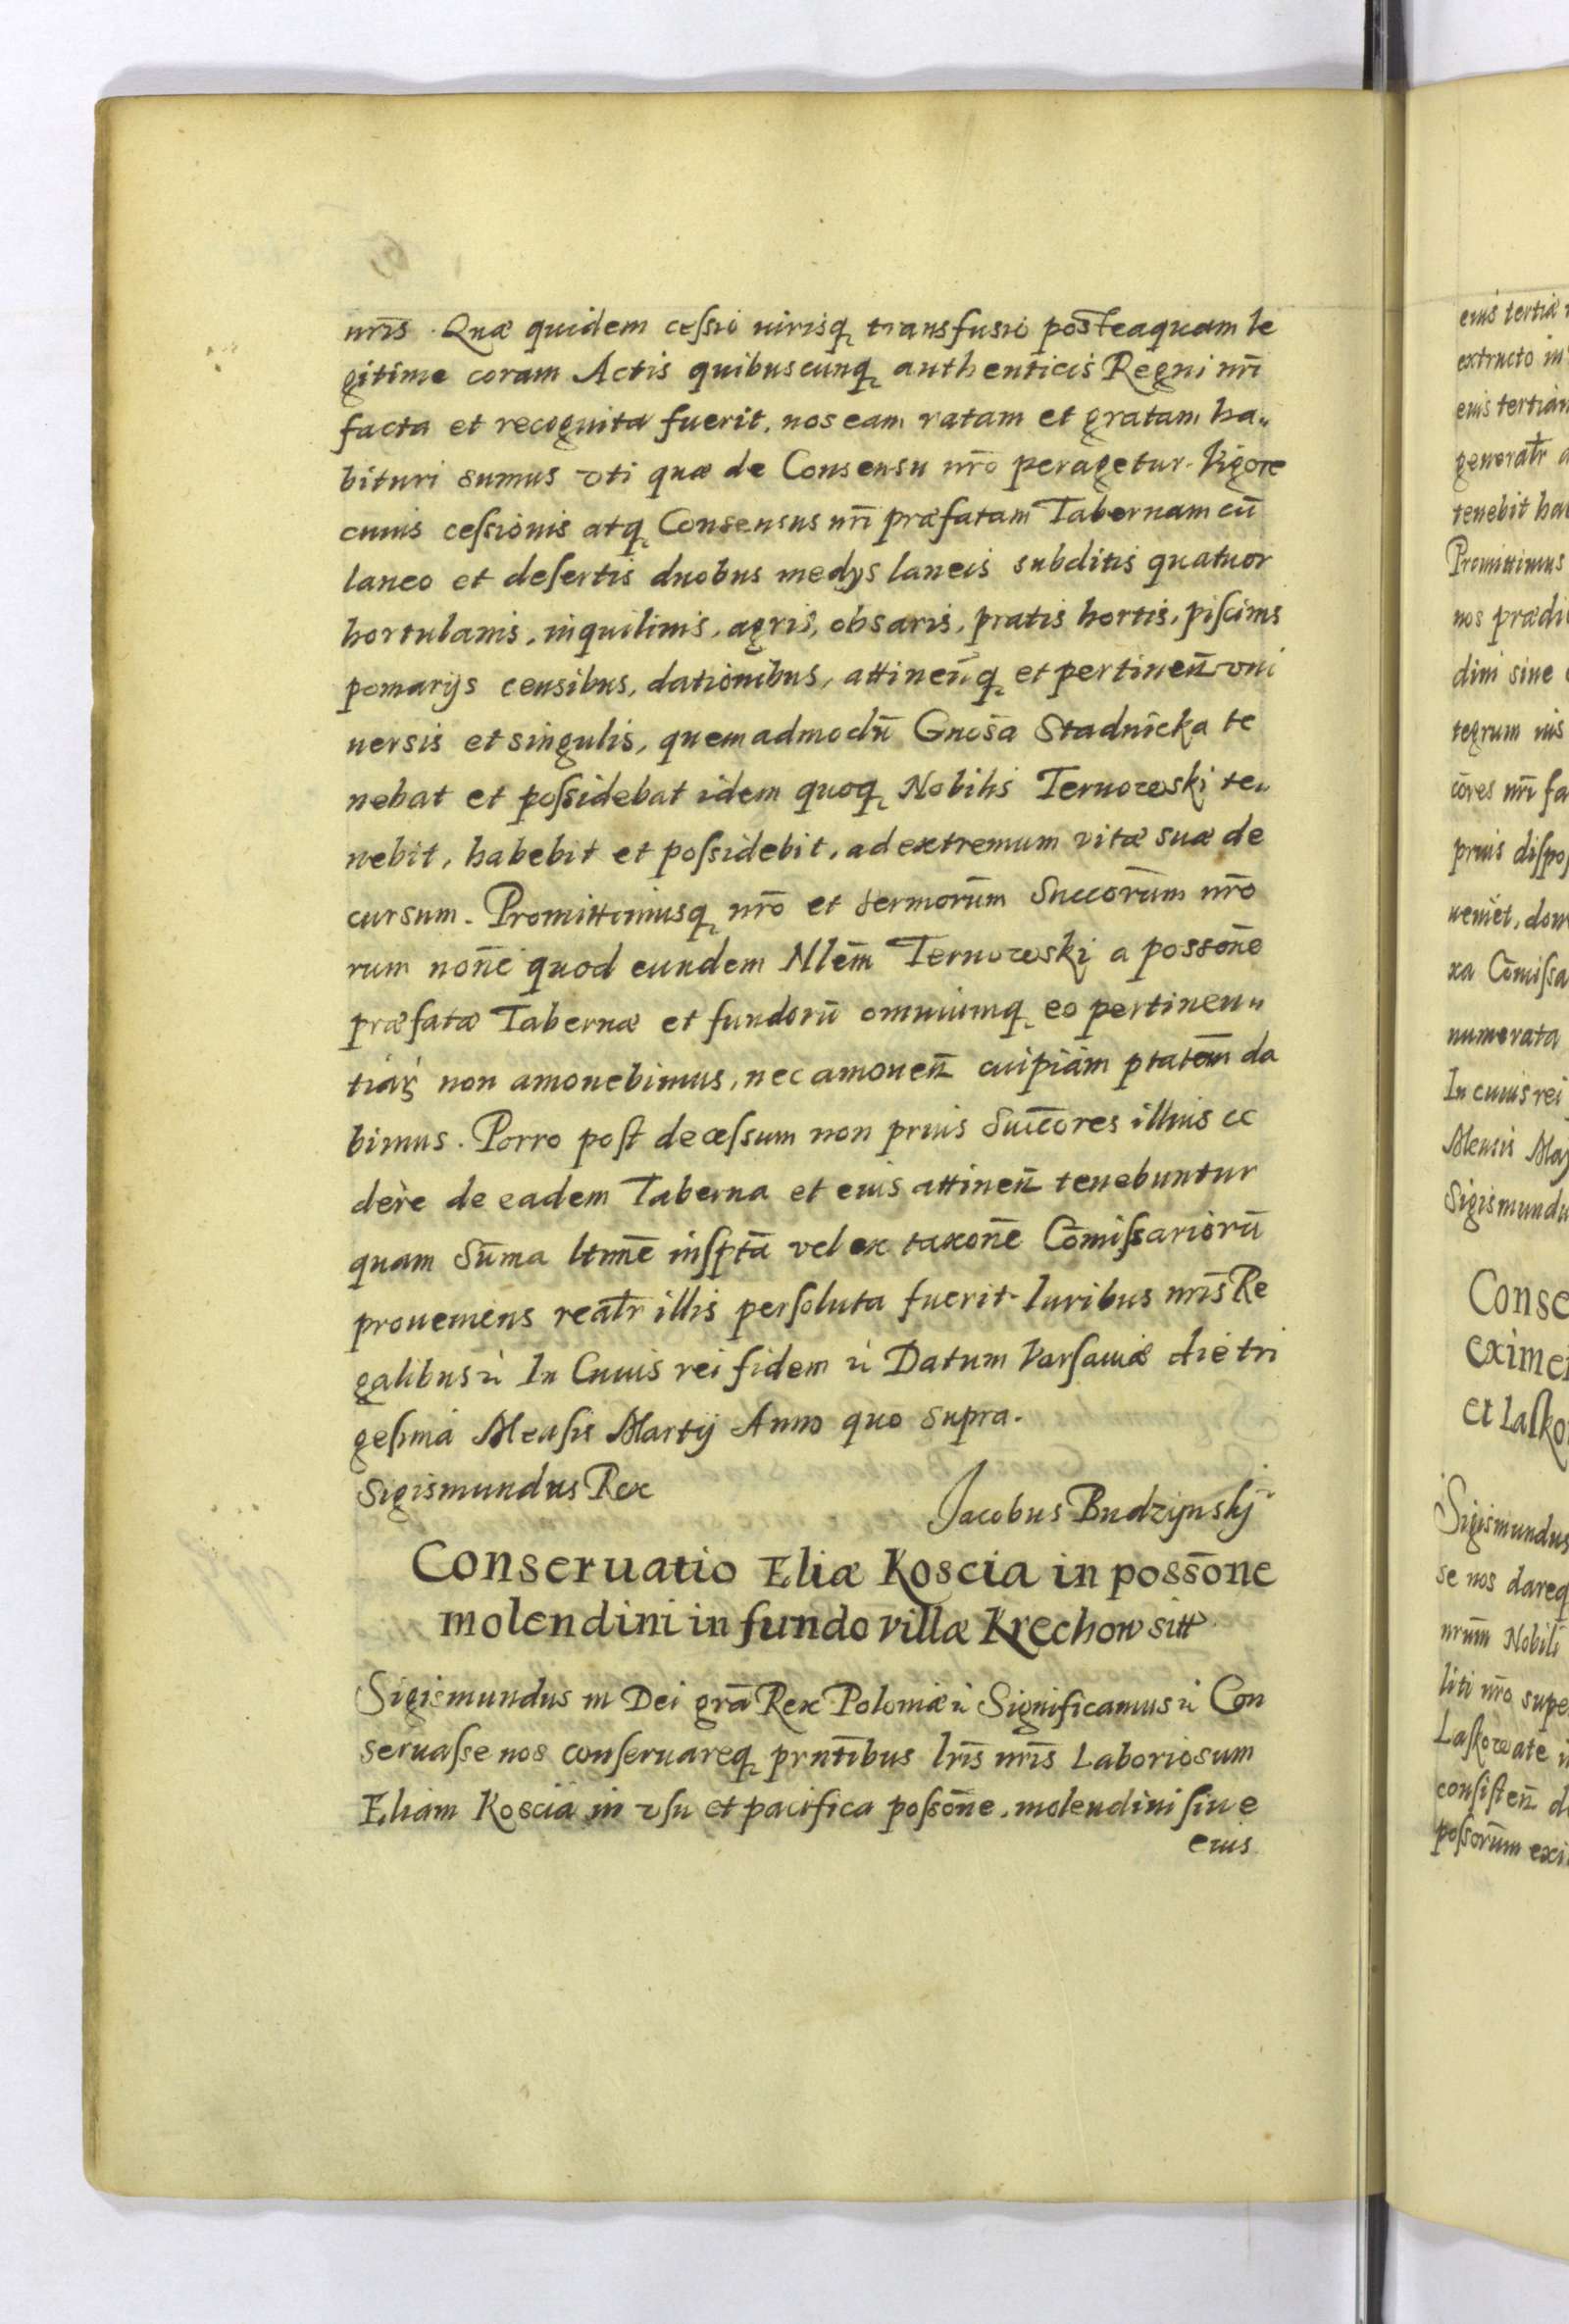 nr̄is. Quæ quidem ceſsio iurisq; transfusio posteaquam le
gitime coram Actis quibuscunq; authenticis Regni nr̄i
facta et recognita fuerit, nos eam ratam et gratam ha„
bituri sumus vti quæ de Consensu nr̄o peragetur. Vigore
cuius ceſsionis atq; Consensus nr̄i præfatam Tabernam cū
laneo et deſertis duobus medys laneis subditis quatuor
hortulanis, inquilinis, agris, obsaris, pratis hortis, piſcinis
pomarijs censibus, dationibus, attineñq; et pertineñ vni
uersis et singulis, quemadmodū Gnosā Stadnicka te
nebat et poſsidebat idem quoq; Nobilis Ternowski te„
nebit, habebit et poſsidebit, ad extremum vitæ suæ de
cursum. Promittimusq; nr̄o et Sermorūm Succorūm nr̄o
rum nōne quod eundem Nlēm Ternowski a possōne
præfatæ Tabernæ et fundorū omniumq; eo pertinen„
tiar; non amouebimus, nec amoueñ cuipiam ptatēm da
bimus. Porro poſt deceſsum non prius Succōres illius ce
dere de eadem Taberna et eius attineñ tenebuntur
quam Sūma ltimē inſptā vel ex taxōne Cōmiſsariorū
proueniens realr̄ illis perſoluta fuerit. Iuribus nr̄is Re
galibus rc̄ In Cuius rei fidem rc̄ Datum Varſauiæ die tri
geſima Menſis Martij Anno quo supra.
Sigismundus Rex
Jacobus Budzijnskj
Conseruatio Eliæ Koscia in possōne
molendini in fundo villæ Krechow sitt
Sigismundus III Dei grā Rex Poloniæ rc̄ Significamus rc̄ Con
seruaſse nos conſeruareq; prntībus lr̄is nr̄is Laboriosum
Eliam Koscia in vſu et pacifica poſsōne, molendini ſiue
eius
eius tertiæ
extructo in
eius tertiam
generalr̄
tenebit
Promittimus
nos prædi
dini sine
tegrum ius
cōres nr̄i fa
prius diſpo
ueniet, don
xa Cōmiſsa
numerata
In cuius rei
Mensis Maj
Sigismundu
Conse
eximen
et Laſko
Sigismundus
se nos dareq
nrūm Nobili
liti nr̄o supe
Laſkowate
conſiſteñ d
poſsorūm exi